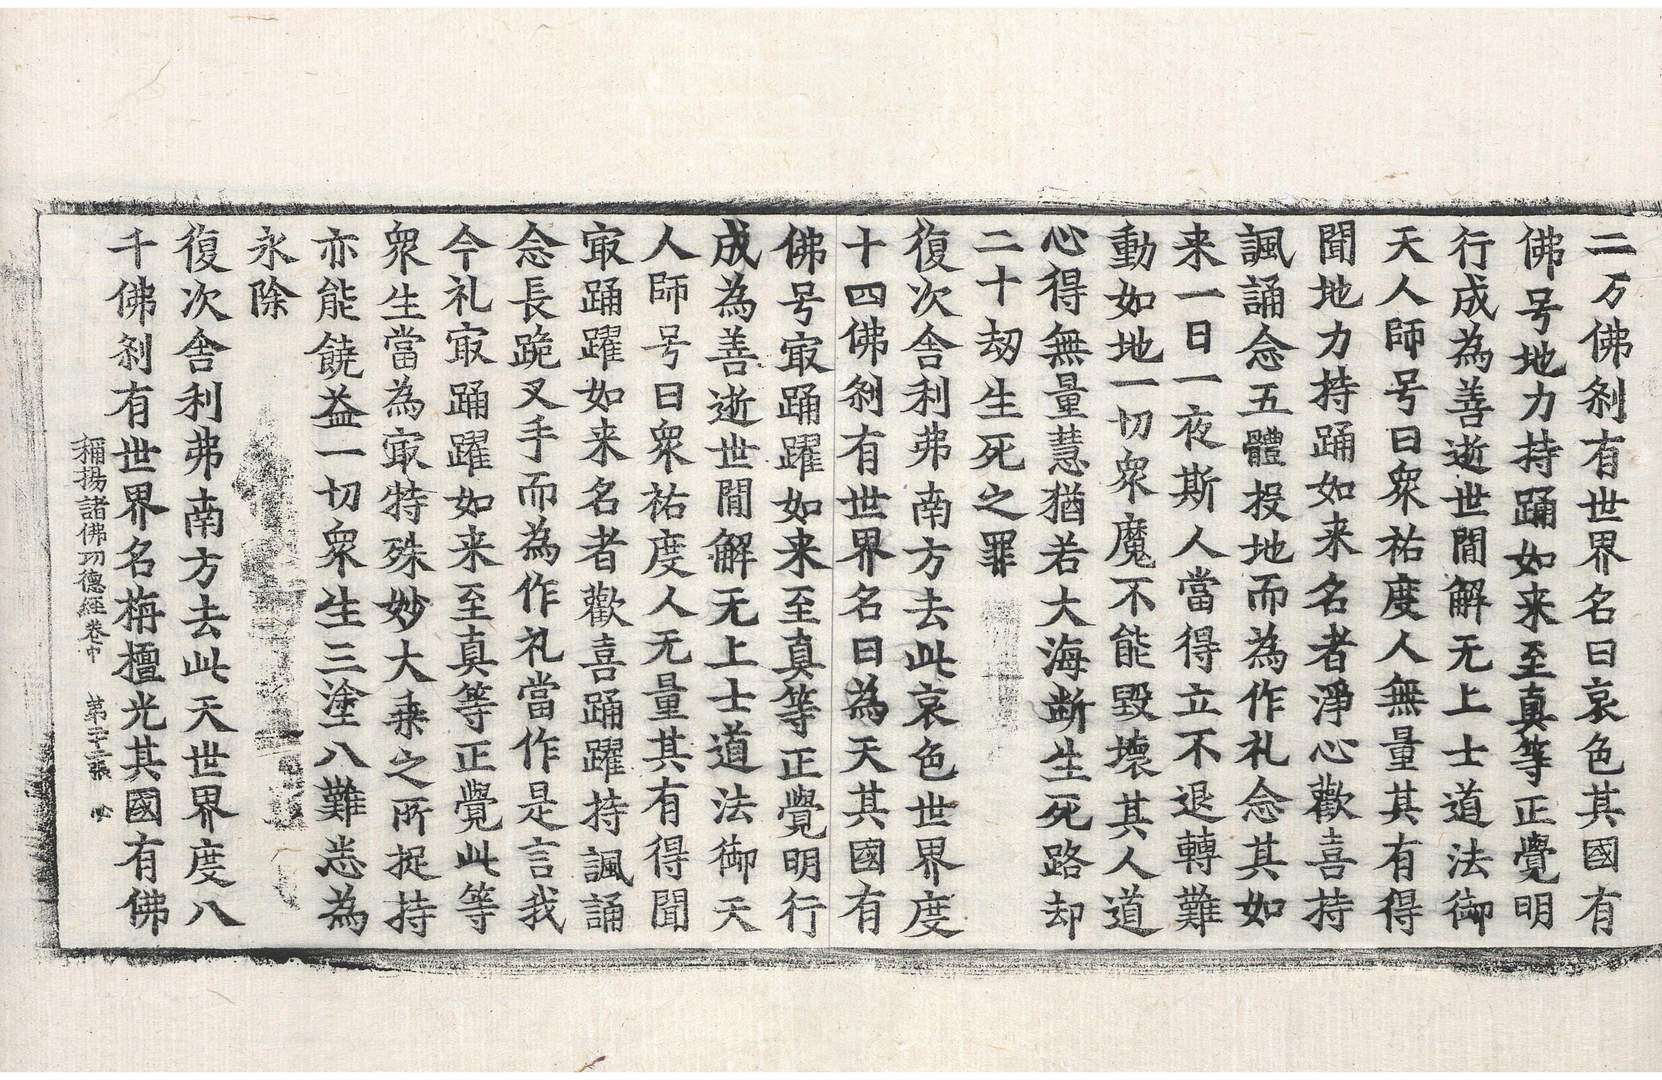 二万佛剎有世界名曰哀色其國有
佛号地力持踊如来至真等正覺明
行成為善逝世間解无上士道法御
天人師号曰衆祐度人無量其有得
聞地力持踊如来名者淨心歡喜持
諷誦念五體投地而為作礼念其如
来一日一夜斯人當得立不退轉難
動如地一切衆魔不能毀壞其人道
心得無量慧猶若大海断生死路却
二十劫生死之罪
復次舎利弗南方去此哀色世界度
十四佛剎有世界名曰為天其國有
佛号㝡踊躍如来至真等正覺明行
成為善逝世間解无上士道法御天
人師号曰衆祐度人无量其有得聞
㝡踊躍如来名者歡喜踊躍持諷誦
念長跪叉手而為作礼當作是言我
今礼㝡踊躍如来至真等正覺此等
衆生當為㝡特殊妙大乗之所捉持
亦能饒益一切衆生三塗八難悉為
永除
復次舎利弗南方去此天世界度八
千佛剎有世界名栴檀光其國有佛
稱揚諸佛功德經卷中 第二張